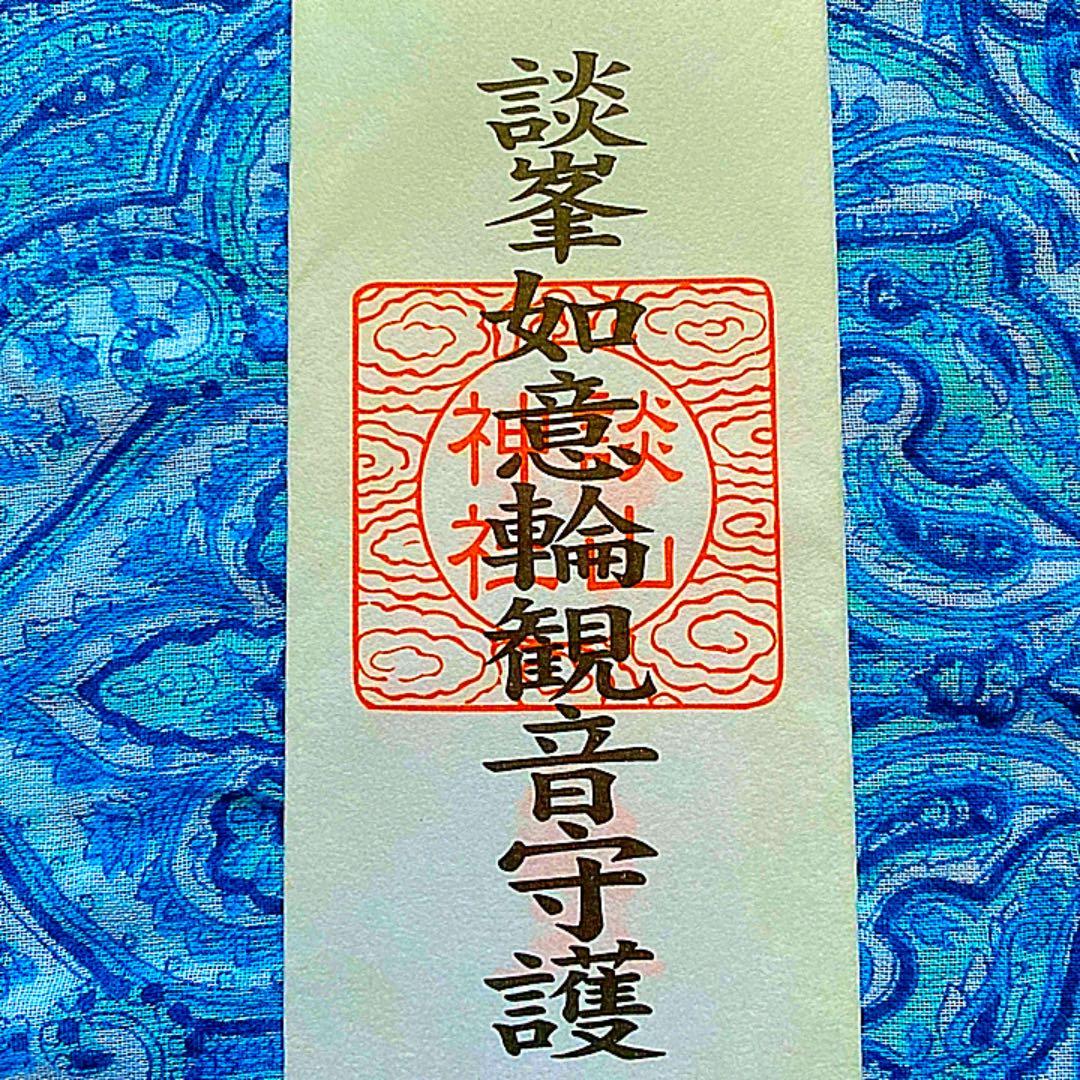 談峯如意輪観音守護
談山
神社